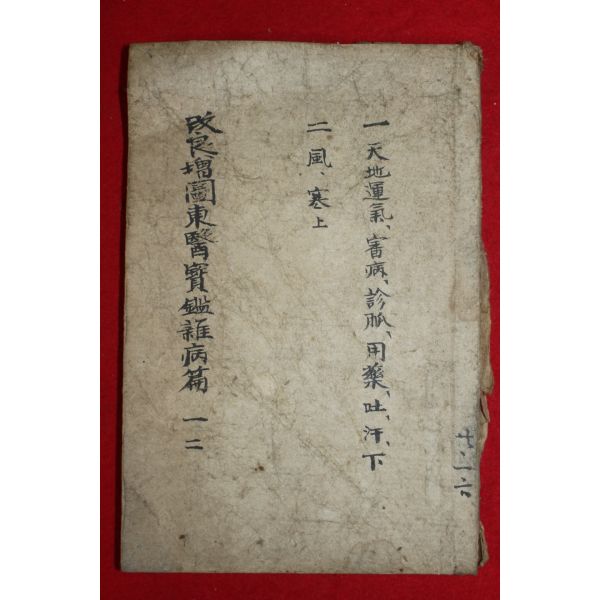 一 天地運氣、審病、診脈、用藥、吐、汗、下
二 風、寒上
改良增圖東醫寶鑑雜病篇 一二